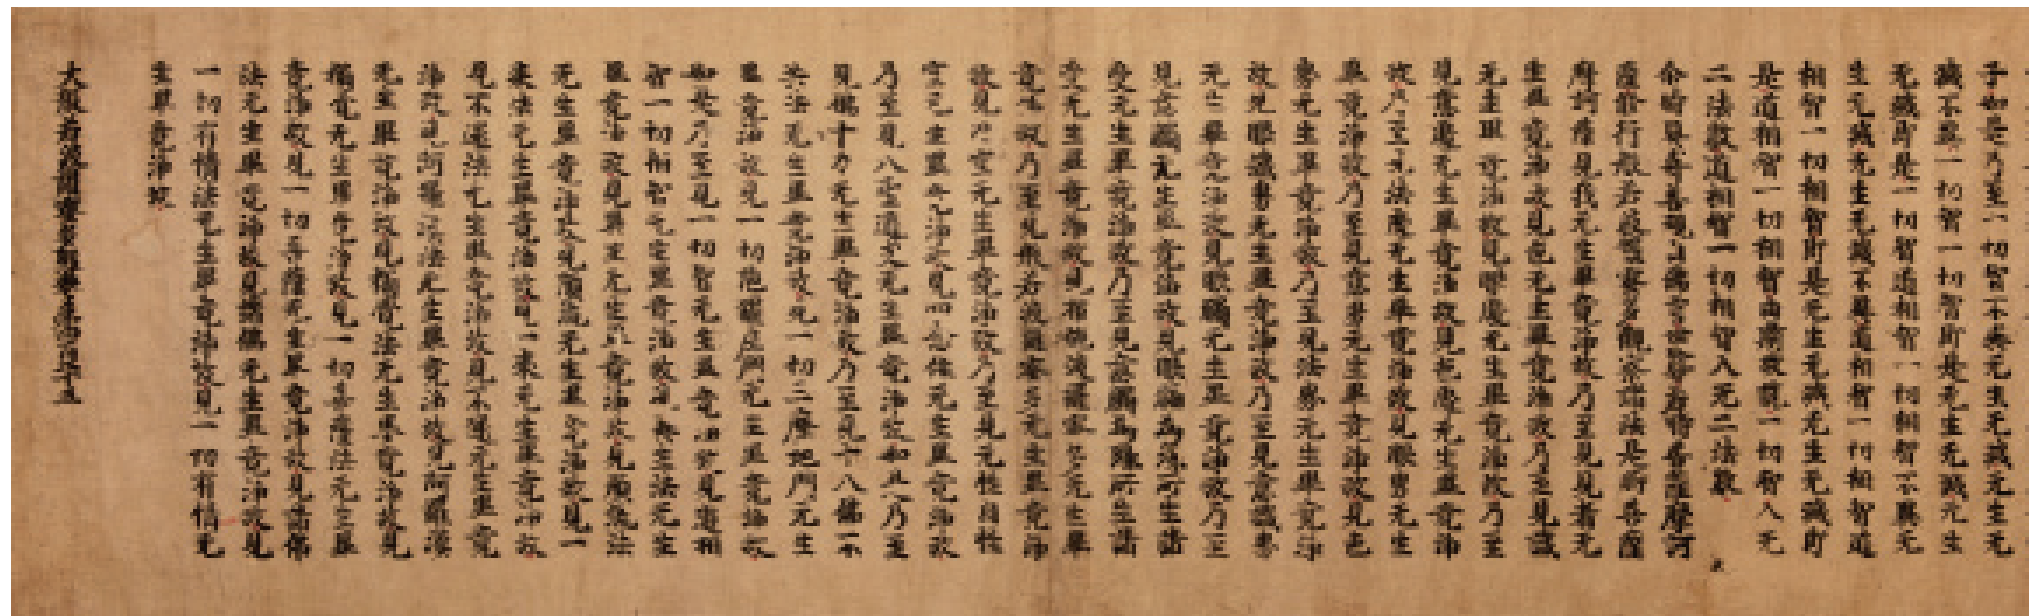 子如是乃至一切智不異无生无滅无生无
滅不異一切智一切智即是无生无滅无生
无滅即是一切智道相智一切相智不異无
生无滅无生无滅不異道相智一切相智道
相智一切相智即是无生无滅无生无滅即
是道相智一切相智由斯故說一切智入无
二法數道相智一切相智入无二法數
尒時具壽善現白佛言世尊若時菩薩摩訶
薩修行般若波羅蜜多觀察諸法是時菩薩
摩訶薩見我无生畢竟淨故乃至見見者无
生畢竟淨故見色无生畢竟淨故乃至見識
无生畢竟淨故見眼處无生畢竟淨故乃至
見意處无生畢竟淨故見色處无生畢竟淨
故乃至見法處无生畢竟淨故見眼界无生
畢竟淨故乃至見意界无生畢竟淨故見色
界无生畢竟淨故乃至見法界无生畢竟淨
故見眼識界无生畢竟淨故乃至見意識界
无生畢竟淨故見眼觸无生畢竟淨故乃至
見意觸无生畢竟淨故見眼觸為緣所生諸
受无生畢竟淨故乃至見意觸為緣所生諸
受无生畢竟淨故見布施波羅蜜多无生畢
竟淨故乃至見般若波羅蜜多无生畢竟淨
故見內空无生畢竟淨故乃至見无性自性
空无生畢竟淨故見四念住无生畢竟淨故
乃至見八聖道支无生畢竟淨故如是乃至
見佛十力无生畢竟淨故乃至見十八佛不
共法无生畢竟淨故見一切三摩地門无生
畢竟淨故見一切陀羅尼門无生畢竟淨故
如是乃至見一切智无生畢竟淨故見道相
智一切相智无生畢竟淨故見異生法无生
畢竟淨故見異生无生畢竟淨故見預流法
无生畢竟淨故見預流无生畢竟淨故見一
來法无生畢竟淨故見一來无生畢竟淨故
見不還法无生畢竟淨故見不還无生畢竟
淨故見阿羅漢法无生畢竟淨故見阿羅漢
无生畢竟淨故見獨覺法无生畢竟淨故見
獨覺无生畢竟淨故見一切菩薩法无生畢
竟淨故見一切菩薩无生畢竟淨故見諸佛
法无生畢竟淨故見諸佛无生畢竟淨故見
一切有情法无生畢竟淨故見一切有情无
生畢竟淨故
大般若波羅蜜多經卷第